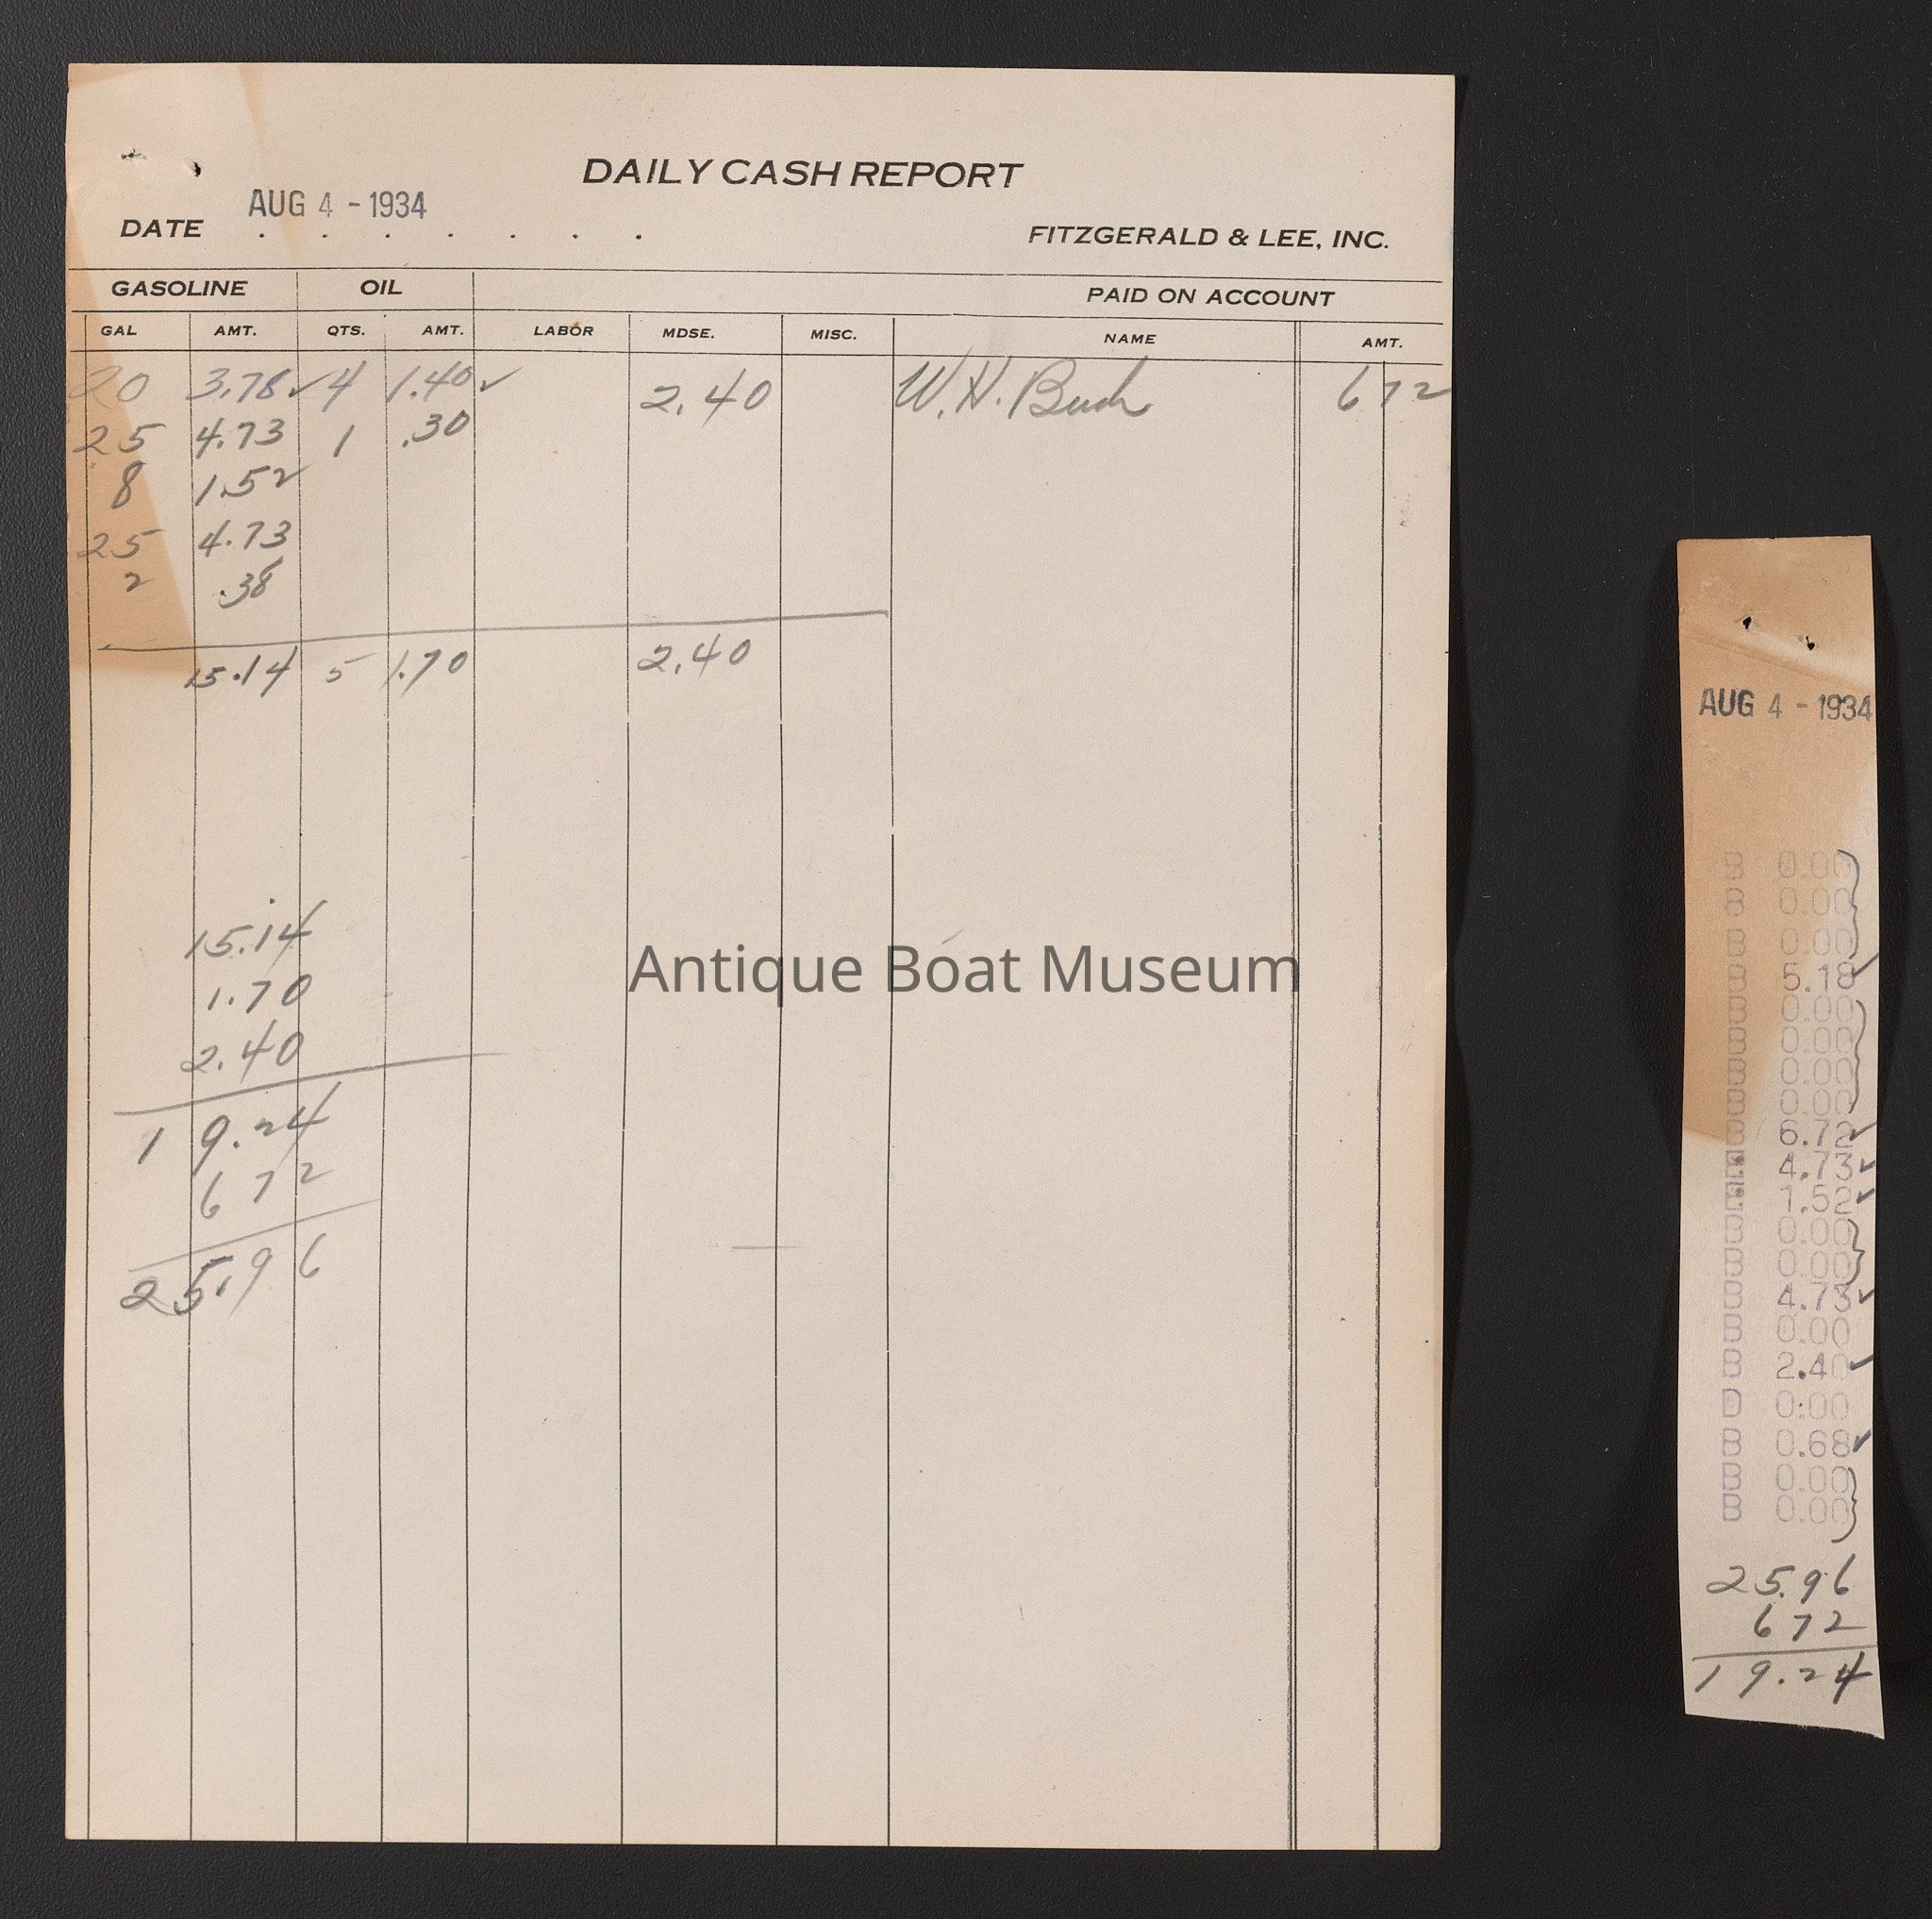 DAILY CASH REPORT
AUG 4 - 1934
DATE . . . . . . .
FITZGERALD & LEE, INC.
GASOLINE OIL PAID ON ACCOUNT
GAL AMT. QTS. AMT. LABOR MDSE. MISC. NAME AMT.
20 3.78✓ 4 1.40✓ 2.40 W. H. 6 72
25 4.73 1 .30
8 1.52
25 4.73
2 .38
15.14 5 1.70 2.40
15.14
1.70
2.40
19.24
6 72
25.96
Antique Boat Museum
AUG 4 - 1934
B 0.00
B 0.00
B 0.00
B 5.18✓
B 0.00
B 0.00
B 0.00
B 0.00
B 6.72✓
4.73✓
1.52✓
B 0.00
B 0.00
B 4.73✓
B 0.00
B 2.40✓
D 0.00
B 0.68✓
B 0.00
B 0.00
25.96
6 72
19.24